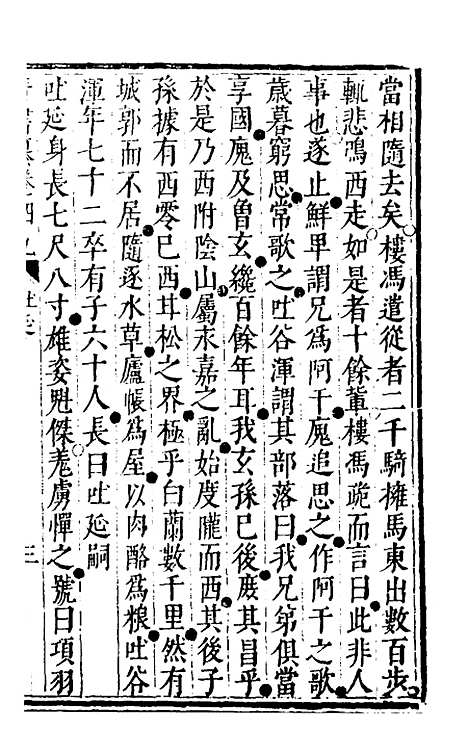 當相隨去矣樓馮遣從者二千騎擁馬東出數百步
輒悲鳴西走如是者十餘輩樓馮跪而言曰此非人
事也遂止鮮卑謂兄爲阿干廆追思之作阿干之歌
歳暮窮思常歌之吐谷渾謂其部落曰我兄弟俱當
享國廆及曾玄纔百餘年耳我玄孫已後庻其昌乎
於是乃西附陰山屬永嘉之亂始度隴而西其後子
孫據有西零已西甘松之界極乎白蘭數千里然有
城郭而不居隨逐水草廬帳爲屋以肉酪爲粮吐谷
渾年七十二卒有子六十人長曰吐延嗣
吐延身長七尺八寸雄姿魁傑羗虜憚之號曰項羽
卷四九
吐延
三